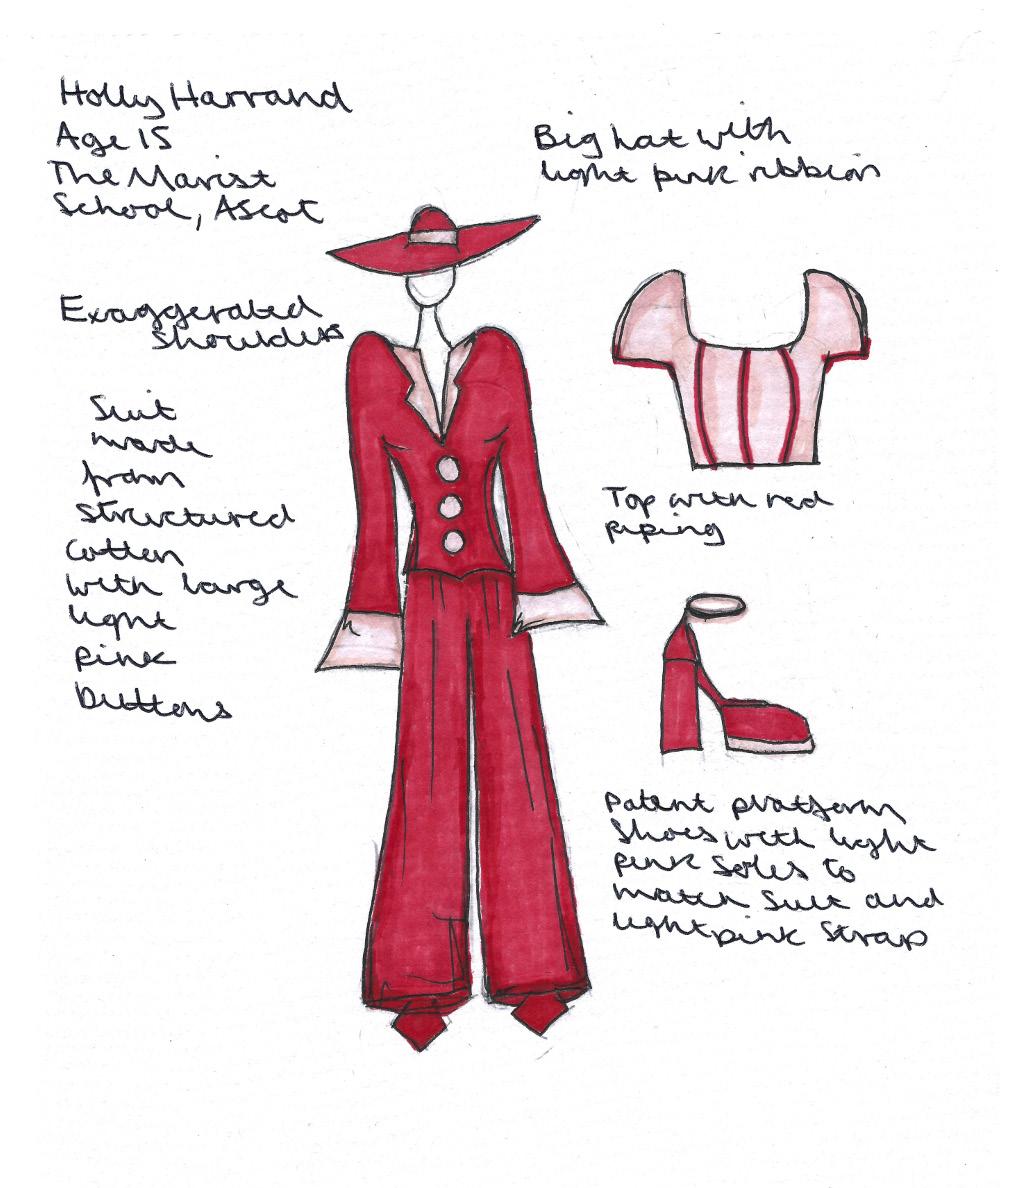 Holly Harrand
Age 15
The Marist
School, Ascot
Big hat with
light pink ribbon
Exaggerated
shoulders
Suit
made
from
structured
cotton
with large
light
pink
buttons
Top with red
piping
Patent platform
shoes with light
pink soles to
match suit and
light pink strap